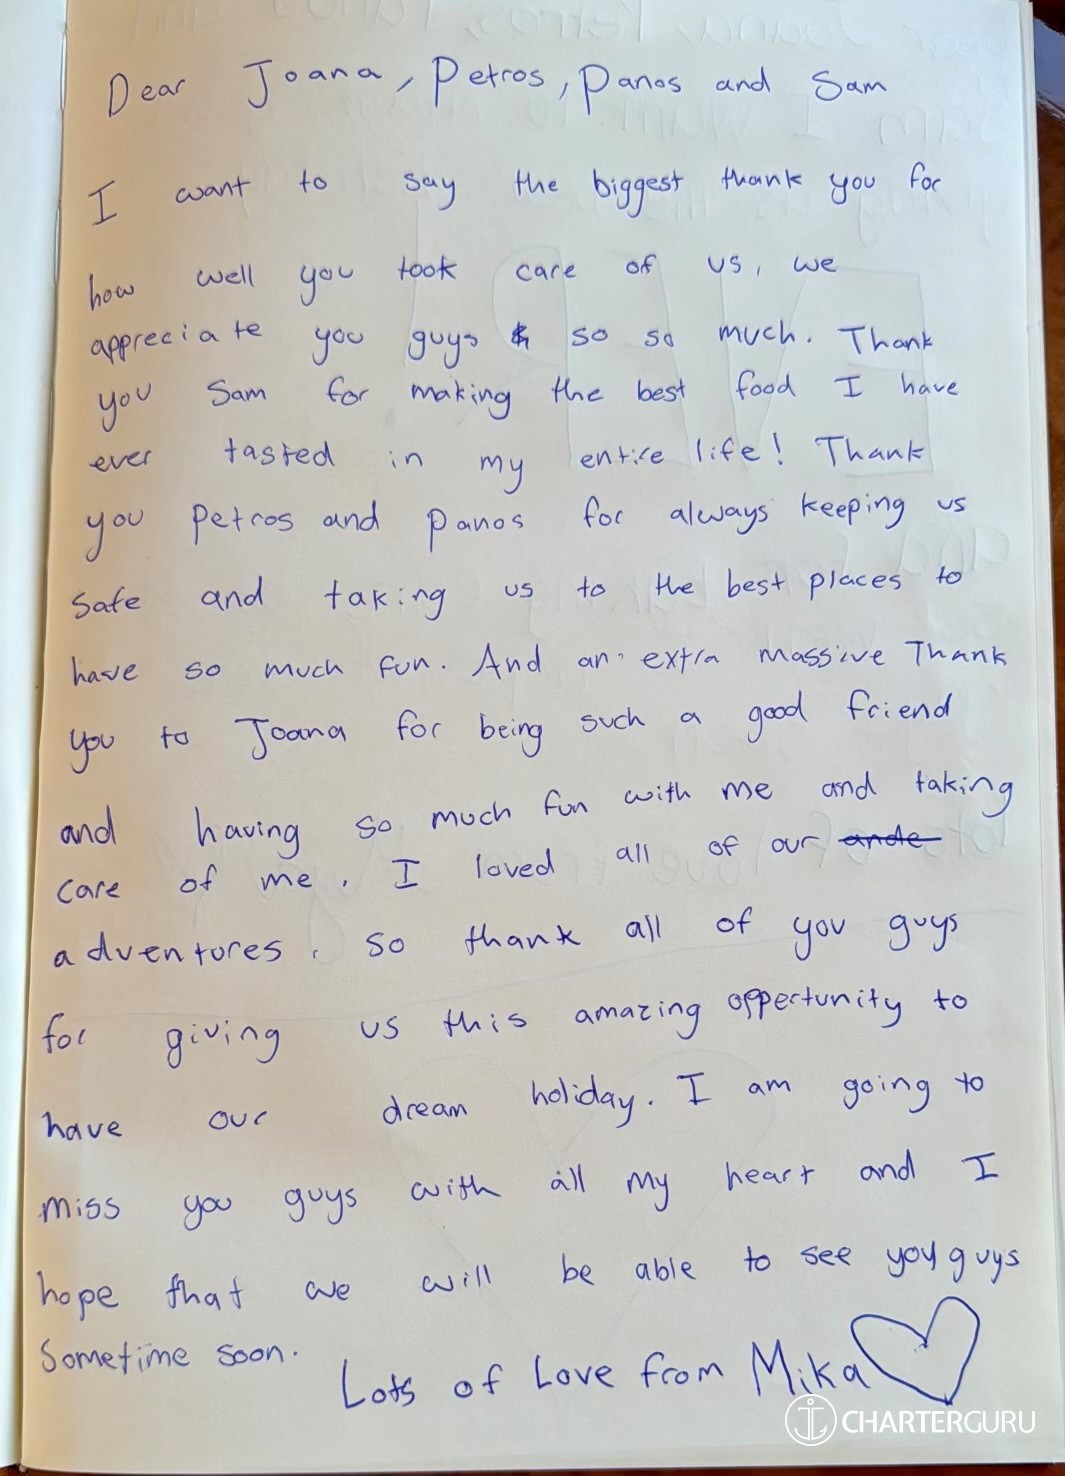 Dear Joana, Petros, Panos and Sam
I want to say the biggest thank you for
how well you took care of us, we
appreciate you guys so so much. Thank
you Sam for making the best food I have
ever tasted in my entire life! Thank
you Petros and Panos for always keeping us
safe and taking us to the best places to
have so much fun. And an extra massive Thank
you to Joana for being such a good friend
and having so much fun with me and taking
care of me. I loved all of our ande
adventures, so thank all of you guys
for giving us this amazing oppertunity to
have our dream holiday. I am going to
miss you guys with all my heart and I
hope that we will be able to see you guys
Sometime soon.
Lots of Love from Mika
CHARTERGURU